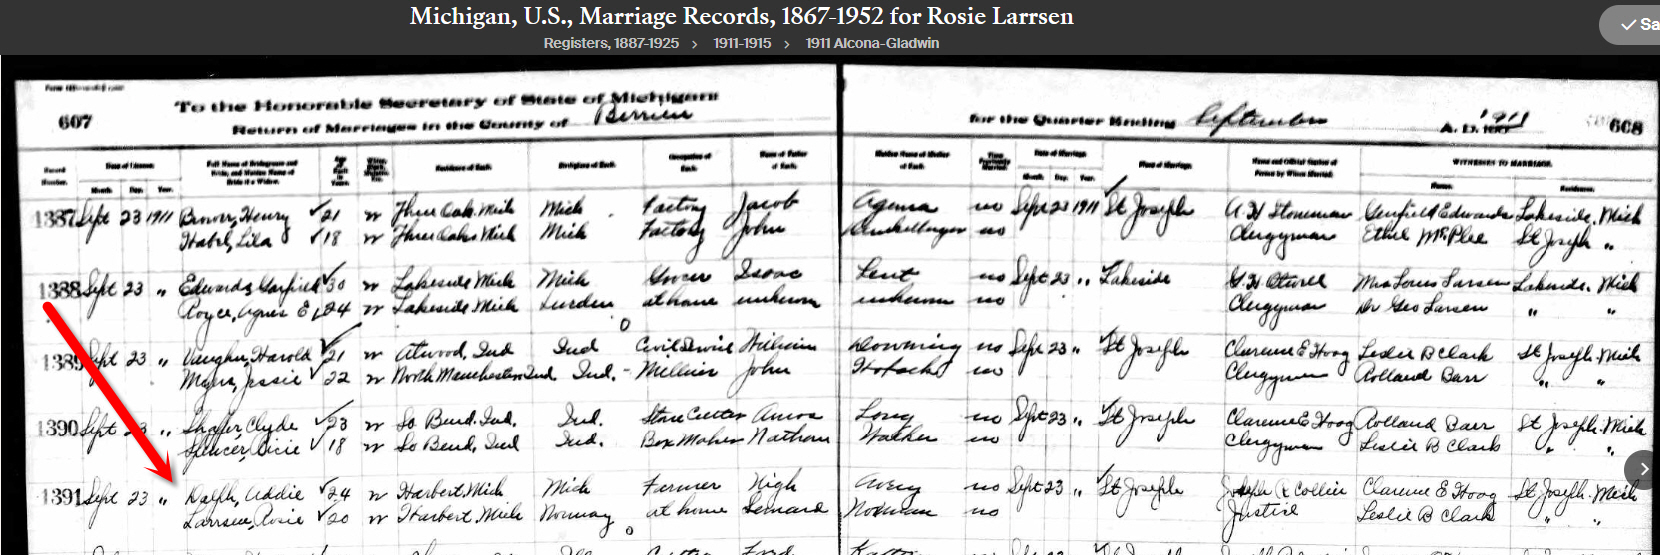 Michigan, U.S., Marriage Records, 1867-1952 for Rosie Larrsen
✓ Sa
Registers, 1887-1925 > 1911-1915 > 1911 Alcona-Gladwin
To the Honorable Secretary of State of Michigan
607 Return of Marriages in the County of Berrien
for the Quarter Ending September A. D. 1911 608
Record Number. Date of License. Full Name of Bridegroom and Bride, and Maiden Name of Bride if a Widow. Age of Each in Years. Residence of Each. Birthplace of Each. Occupation of Each. Name of Father of Each. Maiden Name of Mother of Each. Date of Marriage. Place of Marriage. Name and Official Station of Person by Whom Married. WITNESSES TO MARRIAGE.
Month. Day. Year. Month. Day. Year. Names. Residence.
1387 Sept 23 1911 Brower, Henry 21 w Three Oaks Mich Mich Factory Jacob Agema no Sept 23 1911 St Joseph A. H Stoneman Garfield Edwards Lakeside, Mich
Habel, Lila 18 w Three Oaks Mich Mich Factory John no Clergyman Ethel McPlee St Joseph "
1388 Sept 23 " Edwards, Garfield 30 w Lakeside Mich Mich Grocer Isaac Lent no Sept 23 " Lakeside Clergyman Mrs Louis Larsen Lakeside. Mich
Royce, Agnes E 24 w Lakeside Mich Sweden at home unknown unknown no Clergyman Dr Geo Larsen " "
1389 Sept 23 " Vaughn, Harold 21 w Atwood, Ind Ind Civil Service William Downing no Sept 23 " St Joseph Clarence E Hoag Leslie B Clark St Joseph Mich
Myers, Jessie 22 w North Manchester Ind Ind. Milliner John no Clergyman Rolland Barr " "
1390 Sept 23 " Shafer, Clyde 23 w So Bend, Ind. Ind. Stone Cutter Amos Long no Sept 23 " St Joseph Clarence E Hoag Rolland Barr St Joseph. Mich
Spencer, 18 w So Bend, Ind Ind. Box Maker Nathan Walker no Clergyman Leslie B Clark " "
1391 Sept 23 " Ralph, Addie 24 w Harbert, Mich Mich Farmer High Avery no Sept 23 " St Joseph Joseph R Collier Clarence E Hoag St Joseph. Mich
Larrsen, Rosie 20 w Harbert, Mich Norway at home Leonard Norman no Justice Leslie B Clark " "